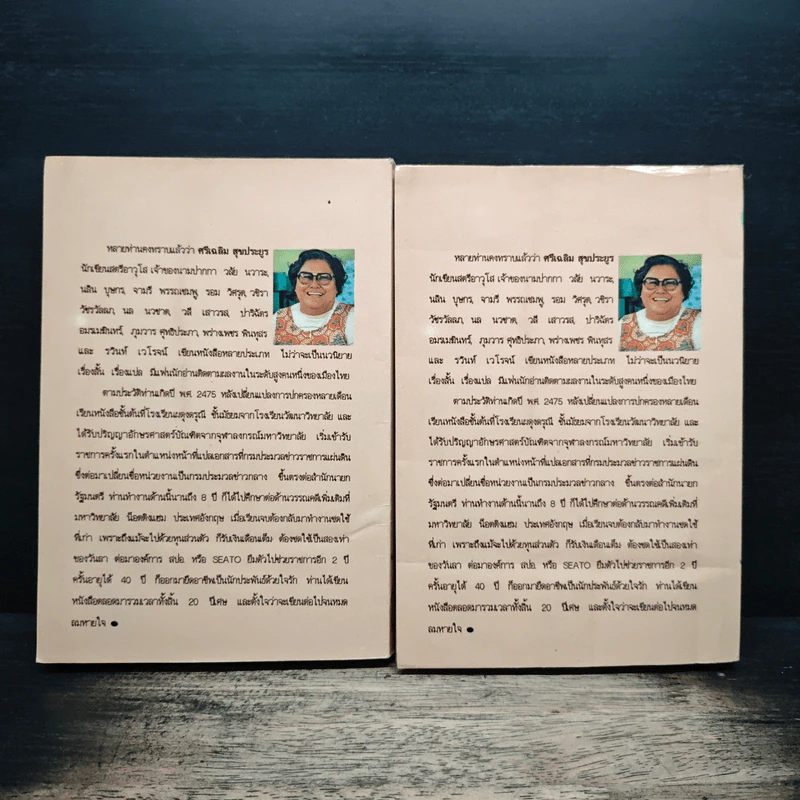 หลายท่านคงทราบแล้วว่า ศรีเฉลิม สุขประยูร
นักเขียนสตรีอาวุโส เจ้าของนามปากกา วลัย นวาระ,
นลิน บุษกร, จามรี พรรณชมพู, รอม วิศรุต, วชิรา
วัชรวัลลภ, นล นวชาต, วลี เสาวรส, ปาริฉัตร
อมรเมฆินทร์, ภูมวาร ศุทธิประภา, พร่างเพชร พินทุสร
และ รวินท์ เวโรจน์ เขียนหนังสือหลายประเภท ไม่ว่าจะเป็นนวนิยาย
เรื่องสั้น เรื่องแปล มีแฟนนักอ่านติดตามผลงานในระดับสูงคนหนึ่งของเมืองไทย
ตามประวัติท่านเกิดปี พ.ศ. 2475 หลังเปลี่ยนแปลงการปกครองหลายเดือน
เรียนหนังสือชั้นต้นที่โรงเรียนผดุงดรุณี ชั้นมัธยมจากโรงเรียนวัฒนาวิทยาลัย และ
ได้รับปริญญาอักษรศาสตร์บัณฑิตจากจุฬาลงกรณ์มหาวิทยาลัย เริ่มเข้ารับ
ราชการครั้งแรกในตำแหน่งหน้าที่แปลเอกสารที่กรมประมวลข่าวราชการแผ่นดิน
ซึ่งต่อมาเปลี่ยนชื่อหน่วยงานเป็นกรมประมวลข่าวกลาง ขึ้นตรงต่อสำนักนายก
รัฐมนตรี ท่านทำงานด้านนี้นานถึง 8 ปี ก็ได้ไปศึกษาต่อด้านวรรณคดีเพิ่มเติมที่
มหาวิทยาลัย น็อตติงแฮม ประเทศอังกฤษ เมื่อเรียนจบต้องกลับมาทำงานชดใช้
ที่เก่า เพราะถึงแม้จะไปด้วยทุนส่วนตัว ก็รับเงินเดือนเต็ม ต้องชดใช้เป็นสองเท่า
ของวันลา ต่อมาองค์การ สปอ. หรือ SEATO ยืมตัวไปช่วยราชการอีก 2 ปี
ครั้นอายุได้ 40 ปี ก็ออกมายึดอาชีพเป็นนักประพันธ์ด้วยใจรัก ท่านได้เขียน
หนังสือตลอดมารวมเวลาทั้งสิ้น 20 ปีเศษ และตั้งใจว่าจะเขียนต่อไปจนหมด
ลมหายใจ ●
หลายท่านคงทราบแล้วว่า ศรีเฉลิม สุขประยูร
นักเขียนสตรีอาวุโส เจ้าของนามปากกา วลัย นวาระ,
นลิน บุษกร, จามรี พรรณชมพู, รอม วิศรุต, วชิรา
วัชรวัลลภ, นล นวชาต, วลี เสาวรส, ปาริฉัตร
อมรเมฆินทร์, ภูมวาร ศุทธิประภา, พร่างเพชร พินทุสร
และ รวินท์ เวโรจน์ เขียนหนังสือหลายประเภท ไม่ว่าจะเป็นนวนิยาย
เรื่องสั้น เรื่องแปล มีแฟนนักอ่านติดตามผลงานในระดับสูงคนหนึ่งของเมืองไทย
ตามประวัติท่านเกิดปี พ.ศ. 2475 หลังเปลี่ยนแปลงการปกครองหลายเดือน
เรียนหนังสือชั้นต้นที่โรงเรียนผดุงดรุณี ชั้นมัธยมจากโรงเรียนวัฒนาวิทยาลัย และ
ได้รับปริญญาอักษรศาสตร์บัณฑิตจากจุฬาลงกรณ์มหาวิทยาลัย เริ่มเข้ารับ
ราชการครั้งแรกในตำแหน่งหน้าที่แปลเอกสารที่กรมประมวลข่าวราชการแผ่นดิน
ซึ่งต่อมาเปลี่ยนชื่อหน่วยงานเป็นกรมประมวลข่าวกลาง ขึ้นตรงต่อสำนักนายก
รัฐมนตรี ท่านทำงานด้านนี้นานถึง 8 ปี ก็ได้ไปศึกษาต่อด้านวรรณคดีเพิ่มเติมที่
มหาวิทยาลัย น็อตติงแฮม ประเทศอังกฤษ เมื่อเรียนจบต้องกลับมาทำงานชดใช้
ที่เก่า เพราะถึงแม้จะไปด้วยทุนส่วนตัว ก็รับเงินเดือนเต็ม ต้องชดใช้เป็นสองเท่า
ของวันลา ต่อมาองค์การ สปอ. หรือ SEATO ยืมตัวไปช่วยราชการอีก 2 ปี
ครั้นอายุได้ 40 ปี ก็ออกมายึดอาชีพเป็นนักประพันธ์ด้วยใจรัก ท่านได้เขียน
หนังสือตลอดมารวมเวลาทั้งสิ้น 20 ปีเศษ และตั้งใจว่าจะเขียนต่อไปจนหมด
ลมหายใจ ●